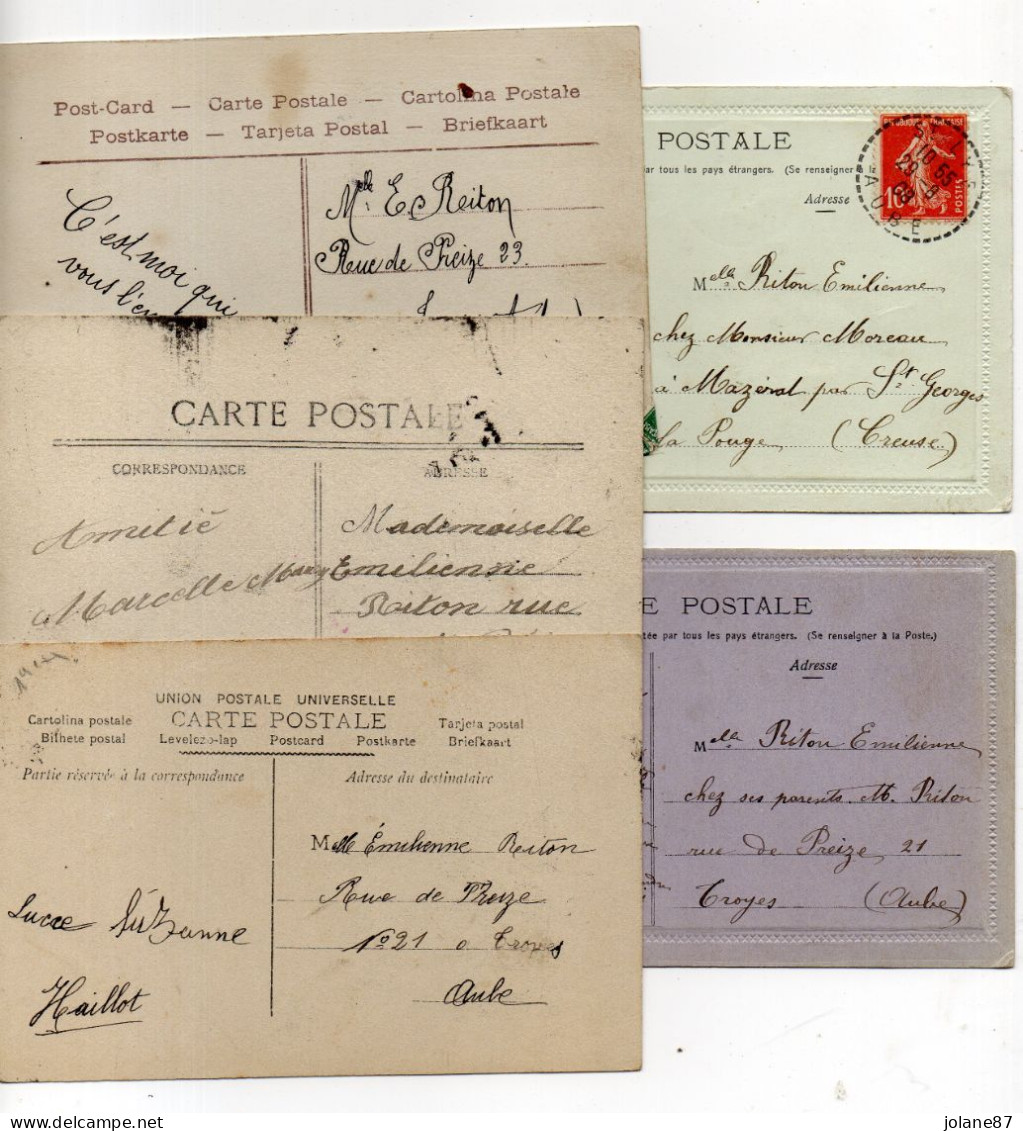 Post-Card — Carte Postale — Cartolina Postale
Postkarte — Tarjeta Postal — Briefkaart
C'est moi qui
vous l'en
Melle E. Reiton
Rue de Preize 23.
CARTE POSTALE
CORRESPONDANCE
ADRESSE
Amitié
Marcelle Mary
Mademoiselle
Emilienne
Riton rue
UNION POSTALE UNIVERSELLE
CARTE POSTALE
Cartolina postale
Tarjeta postal
Bilhete postal
Levelezo-lap
Postcard
Postkarte
Briefkaart
Partie réservée à la correspondance
Adresse du destinataire
Lucie Suzanne
Haillot
Melle Émilienne Reiton
Rue de Preize
No 21 a Troyes
Aube
POSTALE
par tous les pays étrangers. (Se renseigner à la
Adresse
10
POSTES
10 55
29-8
AUBE
Melle Riton Emilienne
chez Monsieur Moreau
à Mazéral par St Georges
la Pouge (Creuse)
E POSTALE
tée par tous les pays étrangers. (Se renseigner à la Poste.)
Adresse
Melle Riton Emilienne
chez ses parents M. Riton
rue de Preize 21
Troyes (Aube)
jolane87
delcampe.net